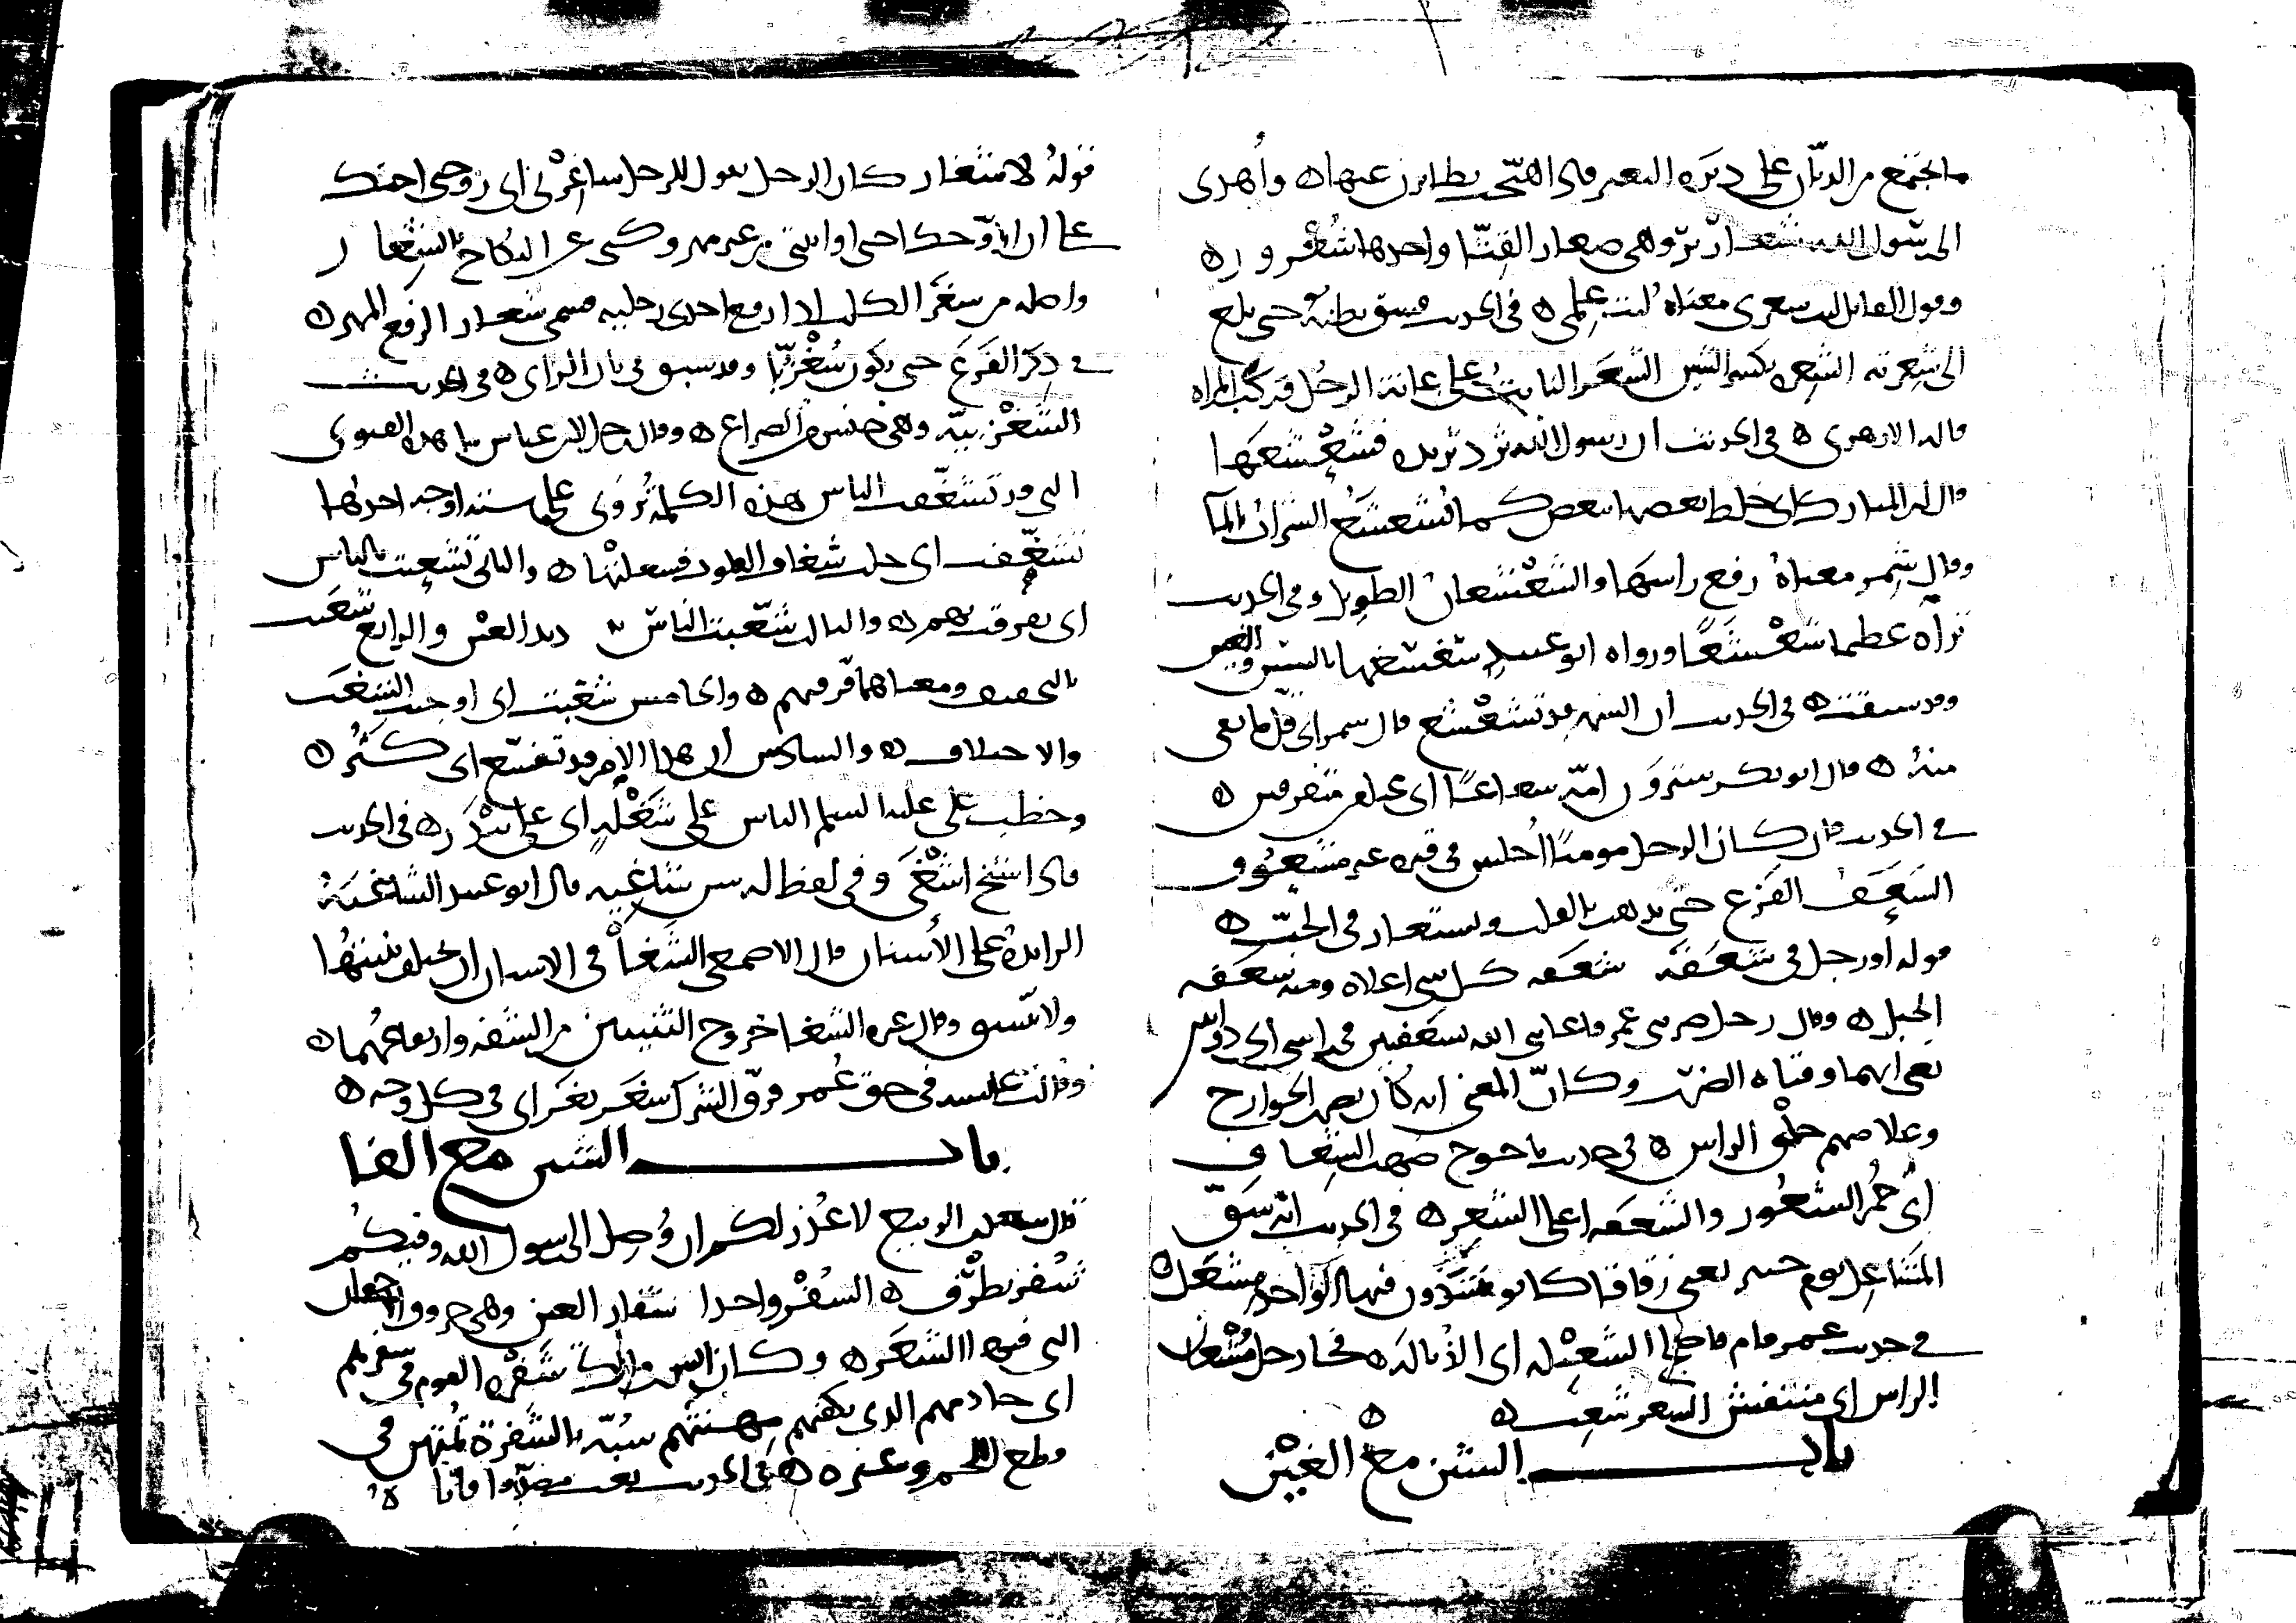 ما اجتمع من الدبان على دبره البعير فاذا اهيجت تطايرت عنها ه وأهدى
الى رسول الله شعارير وهي صغار القثا واحدها شعرور ه
وقول القايل ليت شعري معناه ليت علمي ه في الحديث فشق بطنه حتى بلغ
الى شعرته الشعره بكسر الشين الشعر النابت على عانة الرجل وركب المراه
قاله الازهري ه في الحديث ان رسول الله ثرد ثريده فشعشعها
قال ابن المبارك اي خلط بعضها ببعض كما تشعشع الشراب بالمآ
وقال شمر معناه رفع راسها والشعشعان الطويل وفي الحديث
تراه عظيما شعشعًا ورواه ابو عبيد سغسغها بالسين والغين
وقد سبقت ه في الحديث ان الشهر قد تشعشع قال شمر اي قل ما بقي
منه ه قال ابو بكر سترون امة شعاعًا اي مختلفين متفرقين ه
في الحديث فان كان الرجل مومنًا اجلس في قبره غير مشعوف
الشعف الفزع حتى يذهب بالقلب ويستعار في الحب ه
قوله او رجل في شعفة شعفه كل شي اعلاه ومنه شعفه
الجبل ه وقال رجل ضربني عمر فاغاثني الله بشعفتين في راسي اي ذوابتين
يعني انهما وقتاه الضرب وكانّ المعنى انه كان يضرب الخوارج
وعلامتهم حلق الراس ه في حديث ياجوج صهب الشعاف
اي حُمر الشعور والشعفه اعلى الشعر ه في الحديث انه شق
المشاعل يوم خيبر يعني زقاقا كانوا ينتبذون فيها الواحد مشعل ه
في حديث عمر قام فاصلح الشعيله اي الذبالة ه فجا رجل مشعان
الراس اي منتفش الشعر شعث ه ه
باب الشين مع الغين
قوله لا شغار كان الرجل يقول للرجل شاغرني اي زوجني اختك
على ان ازوجك اختي او ابنتي من غير مهر وكني عن النكاح بالشغار
واصله من شغر الكلب اذا رفع احدى رجليه فسمي شغارا لرفع المهر ه
في ذكر الفرع حتى يكون شغزبًا وقد سبق في باب الزاي ه في الحديث
الشغزبيّه وهي جنس من الصراع ه وقال رجل لابن عباس ما هذه الفتوى
التي قد تشغفت الناس هذه الكلمة تُروى على ستة اوجه احدها
تشغّفت اي حلت شغاف القلوب فشغلتها ه والثاني تشعبت بالناس
اي تفرقت بهم ه والثالث شعّبت الناس بتشديد العين والرابع شعبت
بالتخفيف ومعناهما فرقتهم ه والخامس شغبت اي اوجبت الشغب
والاختلاف ه والسادس ان هذا الامر قد تفشغ اي كثر ه
وخطب علي عليه السلم الناس على شغلة اي على بيدر ه في الحديث
فاذا شيخ اشغى وفي لفظ له سن شاغيه قال ابو عبيد الشاغية
الزايدة على الأسنان قال الاصمعي الشغا في الاسنان ان يختلف نبتتها
ولا تتسق وقال غيره الشغا خروج الثنيتين من الشفه وارتفاعهما ه
وقالت عايشه في حق عمر فرّق الشرك شغر بغر اي في كل وجه ه
باب الشين مع الفا
قال سعد بن الربيع لا عذر لكم ان وُصل الى رسول الله وفيكم
شفر يطرف ه الشفر واحد اشفار العين وهي حروف الاجفان
التي فيها الشعر ه وكان انس بن مالك شفره القوم في سفرهم
اي خادمهم الذي يكفيهم مهنتهم شبّه بالشفرة تُمتهن في
قطع اللحم وغيره ه في الحديث بعث مصدقا فاتا ه